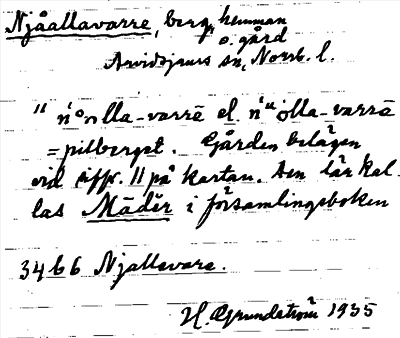 Njåallavarre, berg, hemman
o. gård
Arvidsjaurs sn, Norrb. l.
"
-varrē el. -varrē
= pilberget. Gården belägen
vid siffr. 11 på kartan. Den lär kal-
las Mādēr i församlingsboken
3466 Njallavare.
H. Grundström 1935